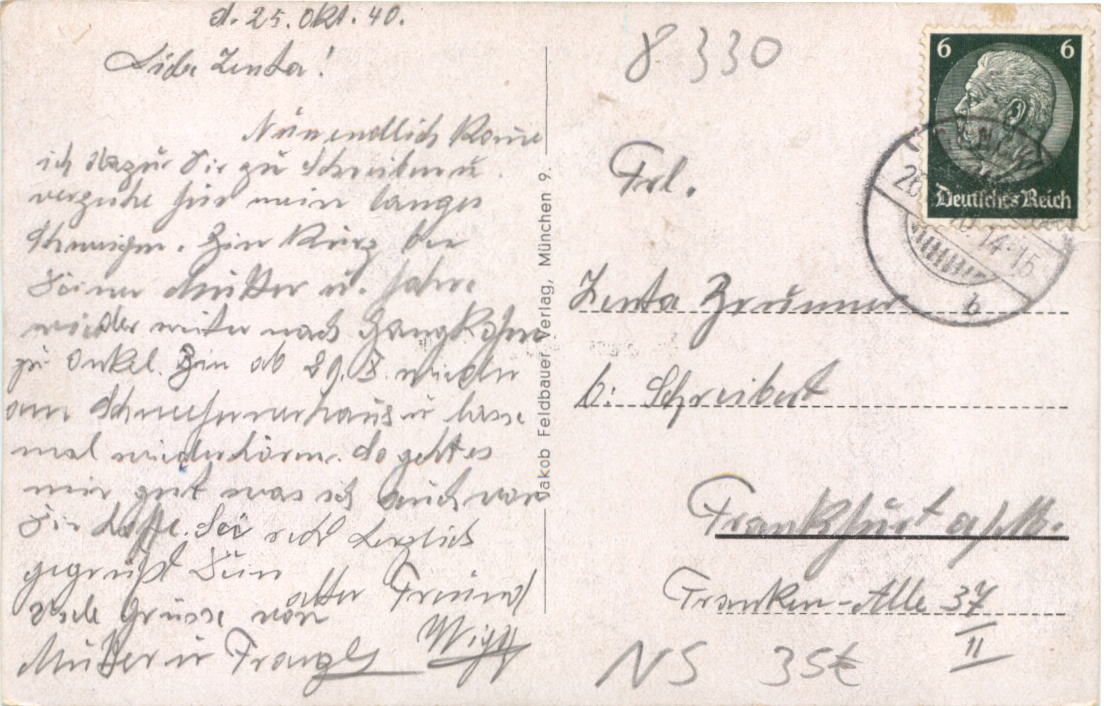 d. 25. Okt. 40.
Liebe Zenta!
Nun endlich komme
ich dazu Dir zu schreiben u.
verzeihe für mein langes
Schweigen. Bin kurz bei
Deiner Mutter u. fahre
wieder weiter nach
zu Onkel. Bin ab 29. X. wieder
am Schneefernerhaus u lasse
mal wiederhören. So geht es
mir gut was ich auch von
Dir hoffe. Sei recht herzlich
gegrüßt Dein
alter Freund
viele Grüsse von
Mutter u Franzl
Jakob Feldbauer Verlag, München 9.
8330
6 6
Deutsches Reich
14-15
b
Frl.
Zenta Brunner
b: Schreibert
Frankfurt a/M.
Franken-Alle 37
II
NS 35€